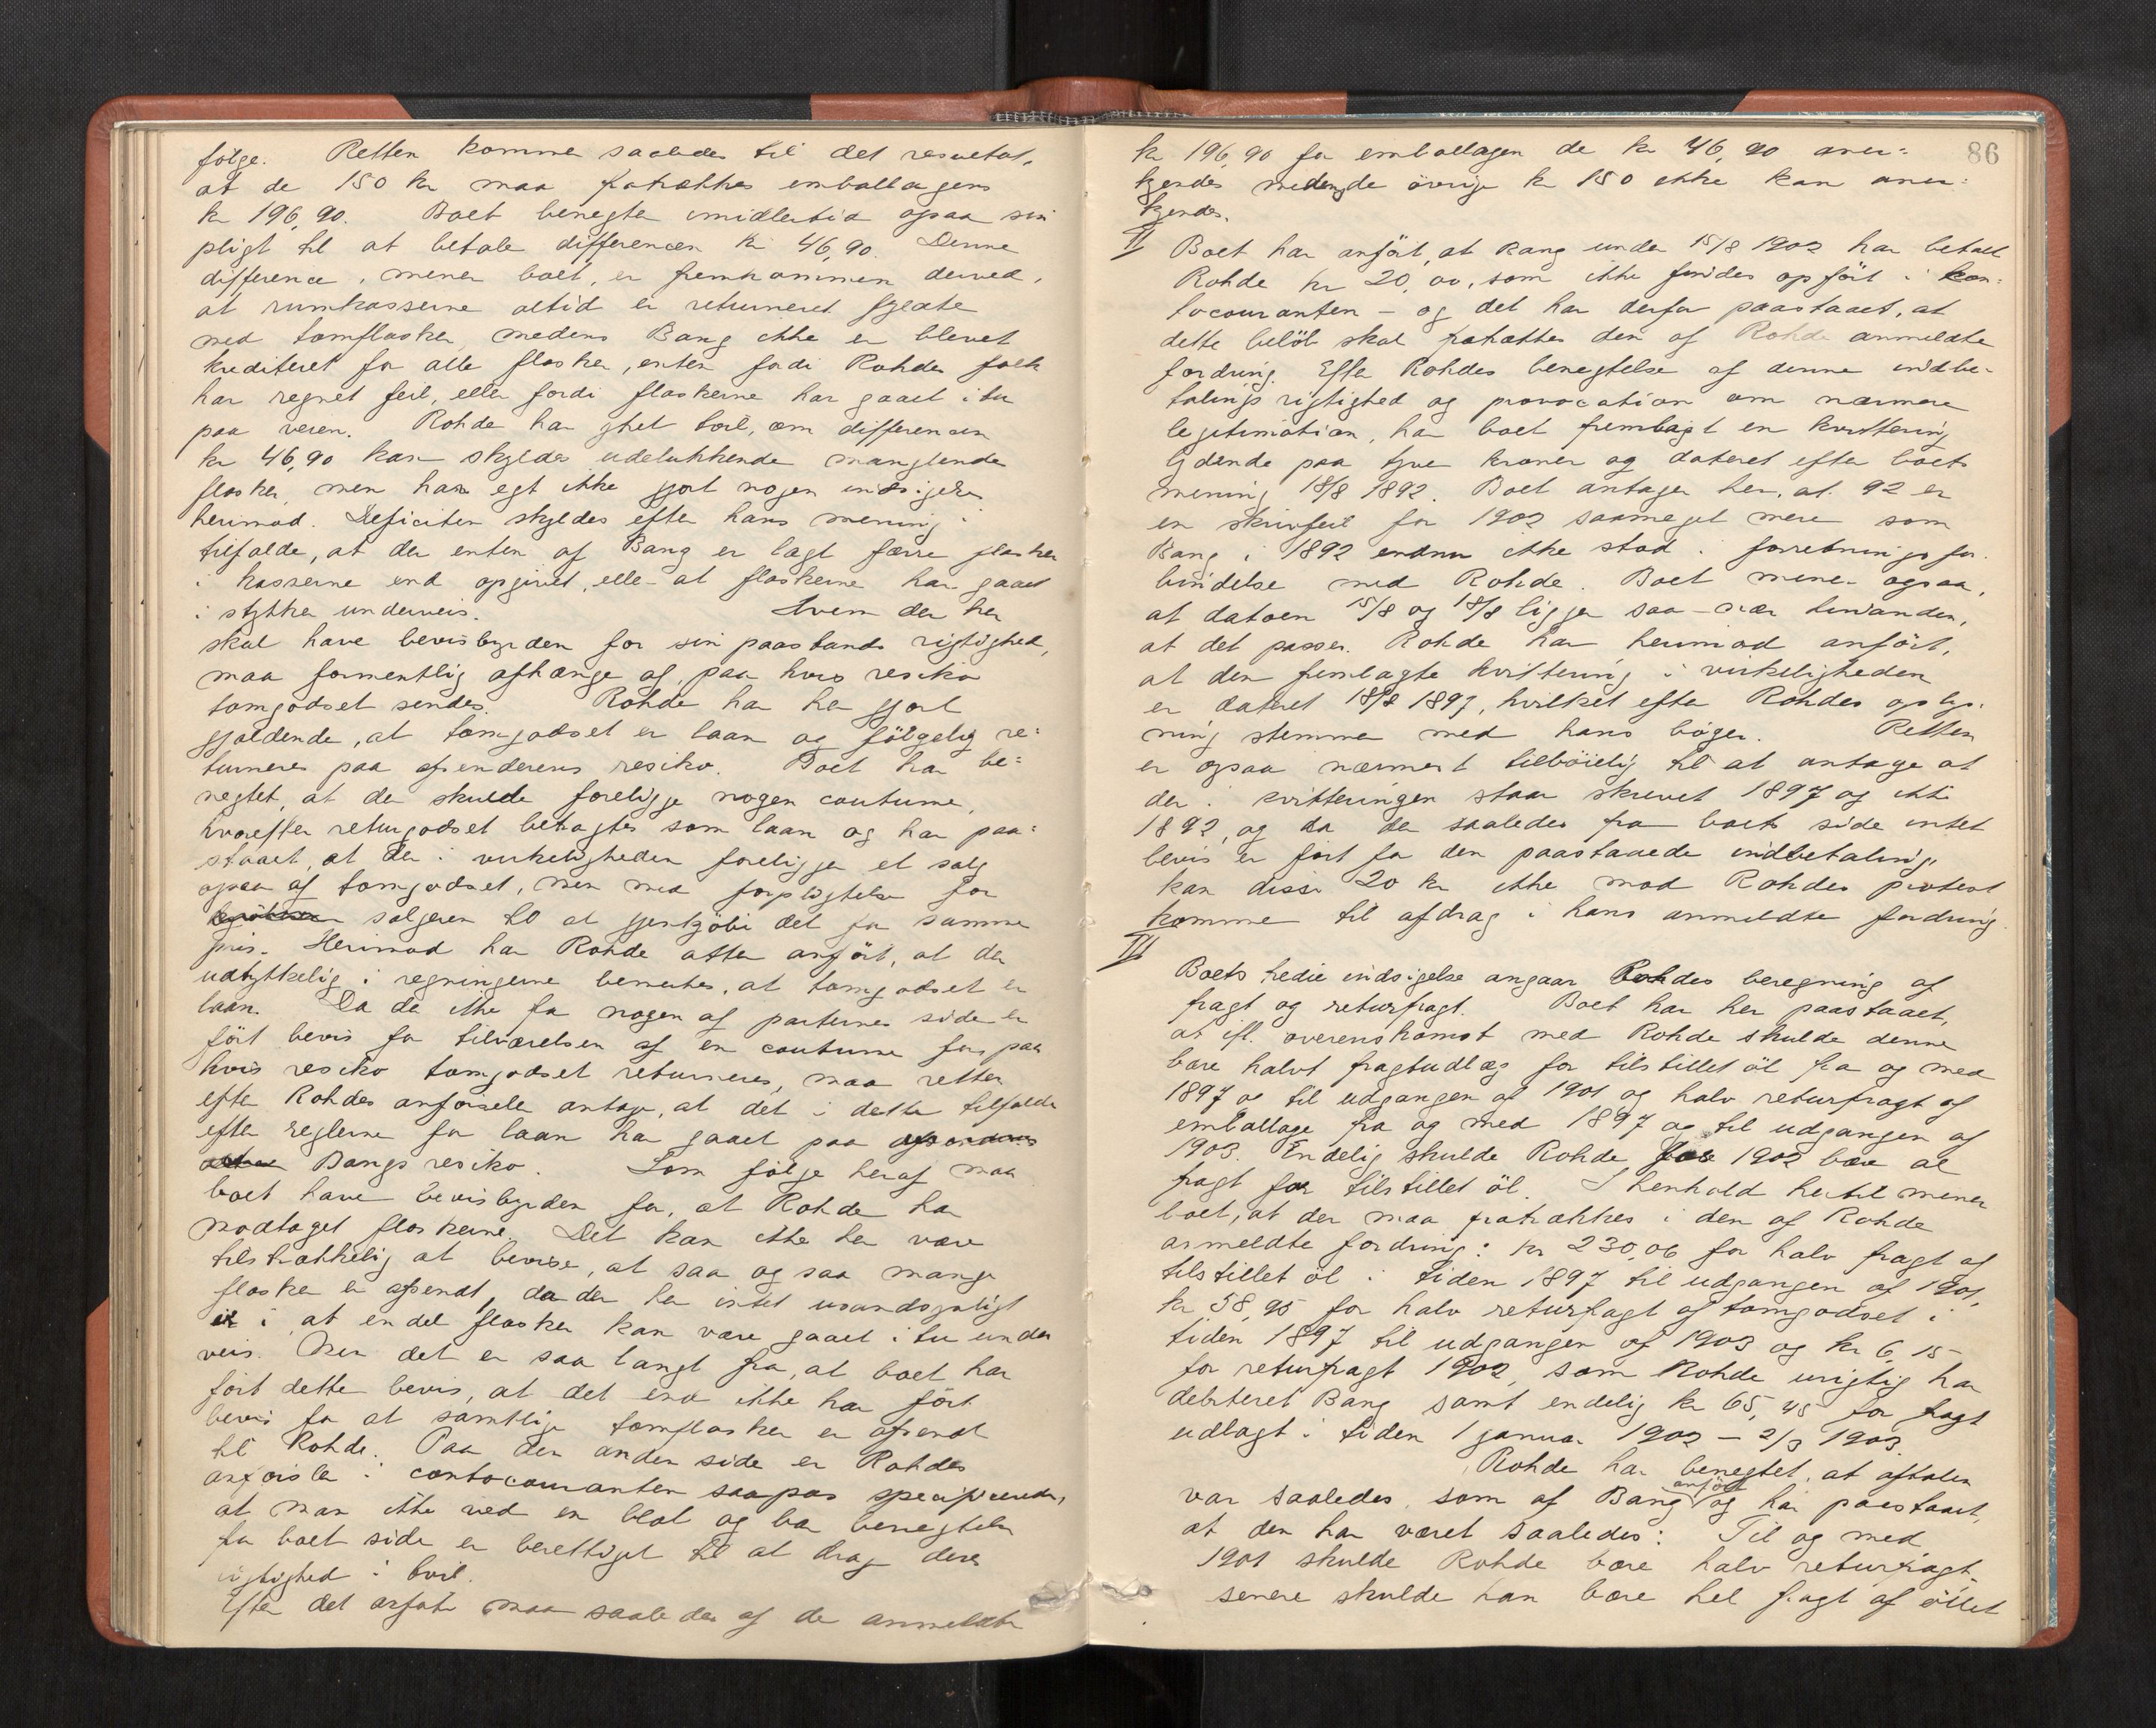 følge. Retten kommer saaledes til det resultat,
at de 150 kr maa fratrækkes emballagens
kr 196,90. Boet benegter imidlertid ogsaa sin
pligt til at betale differencen kr 46,90. Denne
difference, mener boet, er fremkommen derved,
at rumkasserne altid er returneret fyldte
med tomflasker, medens Bang ikke er blevet
krediteret for alle flasker, enten fordi Rohdes folk
har regnet feil, eller fordi flaskerne har gaaet itu
paa veien. Rohde har ytret tvil, om differencen
kr 46,90 kan skyldes udelukkende manglende
flasker, men har egt ikke gjort nogen indsigelse
herimod. Deficiten skyldes efter hans mening i
tilfælde, at der enten af Bang er lagt færre flasker
i kasserne end opgivet, eller at flaskerne har gaaet
i stykker underveis. Hvem der her
skal have bevisbyrden for sin paastands rigtighed,
maa formentlig afhænge af, paa hvis resiko
tomgodset sendes. Rohde har her gjort
gjældende, at tomgodset er laan og følgelig re=
turneres paa afsenderens resiko. Boet har be=
negtet, at der skulde foreligge nogen coutume,
hvorefter returgodset betragtes som laan og har paa=
staaet, at der i virkeligheden foreligger et salg
ogsaa af tomgodset, men med forpligtelse for
sælgeren til at gjenkjøbe det for samme
pris. Herimod har Rohde atter anført, at det
udtrykkelig i regningerne bemerkes, at tomgodset er
laan. Da der ikke fra nogen af parternes side er
ført bevis for tilværelsen af en coutume for, paa
hvis resiko tomgodset returneres, maa retten
efter Rohdes anførsler antage, at det i dette tilfælde
efter reglerne for laan har gaaet paa afsenderens
Bangs resiko. Som følge heraf maa
boet have bevisbyrden for, at Rohde har
modtaget flaskerne. Det kan ikke her være
tilstrækkelig at bevise, at saa og saa mange
flasker er afsendt, da der her intet usandsynligt
er i, at endel flasker kan være gaaet itu under
veis. Men det er saa langt fra, at boet har
ført dette bevis, at det end ikke har ført
bevis for at samtlige tomflasker er afsendt
til Rohde. Paa den anden side er Rohdes
anførsler i contocouranten saapas specificerede,
at man ikke ved en blot og bar benegtelse
fra boet side er berettiget til at drage deres
rigtighed i tvil.
Efter det anførte maa saaledes af de anmeldte
86
kr 196,90 for emballagen de kr 46,90 aner=
kjendes medens de øvrige kr 150 ikke kan aner=
kjendes.
II Boet har anført, at Bang under 15/8 1902 har betalt
Rohde kr 20,00, som ikke findes opført i kon=
tocouranten – og det har derfor paastaaet, at
dette beløb skal fratrættes den af Rohde anmeldte
fordring. Efter Rohdes benegtelse af denne indbe=
talings rigtighed og provocation om nærmere
legitimation, har boet fremlagt en kvittering
lydende paa tyve kroner og dateret efter boets
mening 18/8 1892. Boet antager her, at 92 er
en skrivfeil for 1902 saameget mere som
Bang i 1892 endnu ikke stod i forretningsfor=
bindelse med Rohde. Boet mener ogsaa,
at datoen 15/8 og 18/8 ligger saa nær hinanden,
at det passer. Rohde har herimod anført,
at den fremlagte kvittering i virkeligheden
er dateret 18/8 1897, hvilket efter Rohdes oplys=
ning stemmer med hans bøger. Retten
er ogsaa nærmest tilbøielig til at antage at
der i kvitteringen staar skrevet 1897 og ikke
1892, og da der saaledes fra boets side intet
bevis er ført for den paastaaede indbetaling,
kan disse 20 kr ikke mod Rohdes protest
komme til afdrag i hans anmeldte fordring.
III
Boets tredie indsigelse angaar Rohdes beregning af
fragt og returfragt. Boet har her paastaaet,
at ifl. overenskomst med Rohde skulde denne
bære halvt fragtudlæg for tilstillet øl fra og med
1897 og til udgangen af 1901 og halv returfragt af
emballage fra og med 1897 og til udgangen af
1903. Endelig skulde Rohde for 1902 bære al
fragt for tilstillet øl. I henhold hertil mener
boet, at der maa fratrækkes i den af Rohde
anmeldte fordring: kr 230,06 for halv fragt af
tilstillet øl i tiden 1897 til udgangen af 1901,
kr 58,95 for halv returfragt af tomgodset i
tiden 1897 til udgangen af 1903 og kr 6,15
for returfragt 1902, som Rohde urigtig har
debiteret Bang samt endelig kr 65,45 for fragt
udlagt i tiden 1 januar 1902 – 2/3 1903.
Rohde har benegtet, at aftalen
var saaledes, som af Bang anført og har paastaaet,
at den har været saaledes: Til og med
1901 skulde Rohde bære halv returfragt,
senere skulde han bære hel fragt af øllet